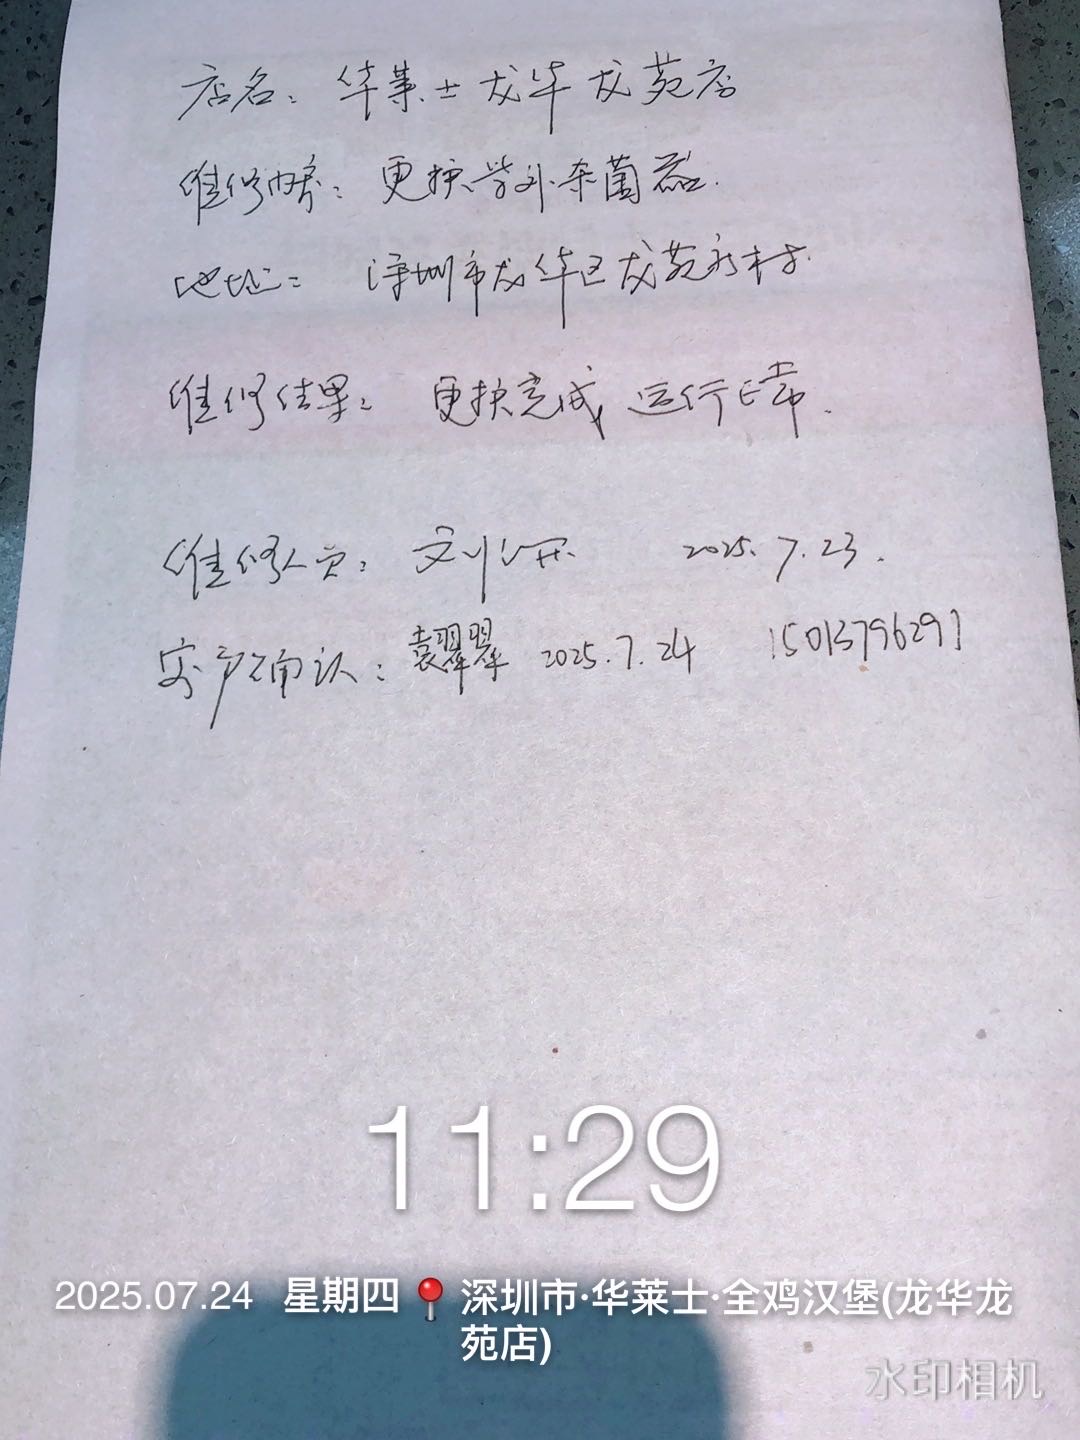 店名：华莱士龙华龙苑店
维修内容：更换紫外杀菌器.
地址：深圳市龙华区龙苑新村.
维修结果：更换完成，运行正常.
维修人员：刘 2025.7.23.
客户确认：袁翠翠 2025.7.24 15013796291
11:29
2025.07.24 星期四 深圳市·华莱士·全鸡汉堡(龙华龙
苑店)
水印相机